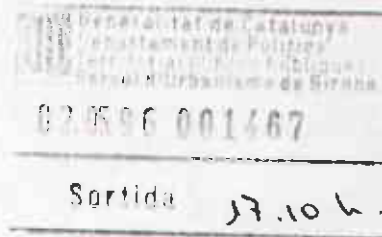 Generalitat de Catalunya
Departament de Política
Territorial i Obres Públiques
Servei d'Urbanisme de Girona
001467
Sortida 17.10 h.